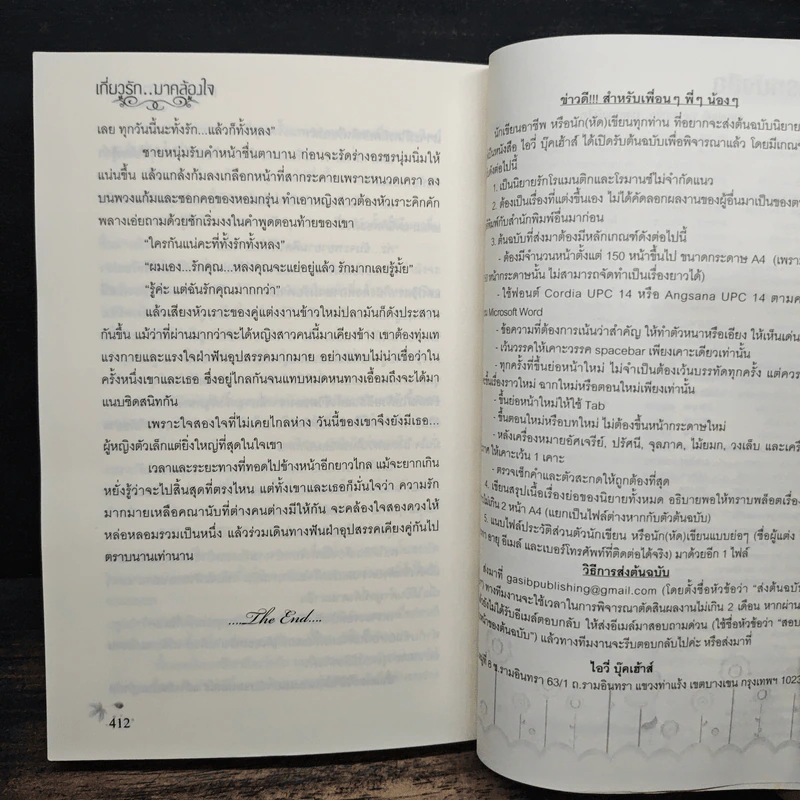 เกี่ยวรัก..มาคล้องใจ
เลย ทุกวันนี้นะทั้งรัก...แล้วก็ทั้งหลง”
ชายหนุ่มรับคำหน้าชื่นตาบาน ก่อนจะรัดร่างอรชรนุ่มนิ่มให้
แน่นขึ้น แล้วแกล้งก้มลงเกลือกหน้าที่สากระคายเพราะหนวดเครา ลง
บนพวงแก้มและซอกคอของหอมกรุ่น ทำเอาหญิงสาวต้องหัวเราะคิกคัก
พลางเอ่ยถามด้วยชักเริ่มงงในคำพูดตอนท้ายของเขา
“ใครกันแน่คะที่ทั้งรักทั้งหลง”
“ผมเอง...รักคุณ...หลงคุณจะแย่อยู่แล้ว รักมากเลยรู้มั้ย”
“รู้ค่ะ แต่ฉันรักคุณมากกว่า”
แล้วเสียงหัวเราะของคู่แต่งงานข้าวใหม่ปลามันก็ดังประสาน
กันขึ้น แม้ว่าที่ผ่านมากว่าจะได้หญิงสาวคนนี้มาเคียงข้าง เขาต้องทุ่มเท
แรงกายและแรงใจฝ่าฟันอุปสรรคมากมาย อย่างแทบไม่น่าเชื่อว่าใน
ครั้งหนึ่งเขาและเธอ ซึ่งอยู่ไกลกันจนแทบหมดหนทางเอื้อมถึงจะได้มา
แนบชิดสนิทกัน
เพราะใจสองใจที่ไม่เคยไกลห่าง วันนี้ของเขาจึงยังมีเธอ...
ผู้หญิงตัวเล็กแต่ยิ่งใหญ่ที่สุดในใจเขา
เวลาและระยะทางที่ทอดไปข้างหน้าอีกยาวไกล แม้จะยากเกิน
หยั่งรู้ว่าจะไปสิ้นสุดที่ตรงไหน แต่ทั้งเขาและเธอก็มั่นใจว่า ความรัก
มากมายเหลือคณานับที่ต่างคนต่างมีให้กัน จะคล้องใจสองดวงให้
หล่อหลอมรวมเป็นหนึ่ง แล้วร่วมเดินทางฟันฝ่าอุปสรรคเคียงคู่กันไป
ตราบนานเท่านาน
....The End....
412
ข่าวดี!!! สำหรับเพื่อนๆ พี่ๆ น้องๆ
นักเขียนอาชีพ หรือนัก(หัด)เขียนทุกท่าน ที่อยากจะส่งต้นฉบับนิยาย
เป็นหนังสือ ไอวี่ บุ๊คเฮ้าส์ ได้เปิดรับต้นฉบับเพื่อพิจารณาแล้ว โดยมีเกณฑ์
ดังต่อไปนี้
1. เป็นนิยายรักโรแมนติกและโรมานซ์ไม่จำกัดแนว
2. ต้องเป็นเรื่องที่แต่งขึ้นเอง ไม่ได้คัดลอกผลงานของผู้อื่นมาเป็นของตน
พิมพ์กับสำนักพิมพ์อื่นมาก่อน
3. ต้นฉบับที่ส่งมาต้องมีหลักเกณฑ์ดังต่อไปนี้
- ต้องมีจำนวนหน้าตั้งแต่ 150 หน้าขึ้นไป ขนาดกระดาษ A4 (เพราะ
หน้ากระดาษนั้น ไม่สามารถจัดทำเป็นเรื่องยาวได้)
- ใช้ฟอนต์ Cordia UPC 14 หรือ Angsana UPC 14 ตาม
Microsoft Word
- ข้อความที่ต้องการเน้นว่าสำคัญ ให้ทำตัวหนาหรือเอียง ให้เห็นเด่น
- เว้นวรรคให้เคาะวรรค spacebar เพียงเคาะเดียวเท่านั้น
- ทุกครั้งที่ขึ้นย่อหน้าใหม่ ไม่จำเป็นต้องเว้นบรรทัดทุกครั้ง แต่ควร
ขึ้นเรื่องราวใหม่ ฉากใหม่หรือตอนใหม่เพียงเท่านั้น
- ขึ้นย่อหน้าใหม่ให้ใช้ Tab
- ขึ้นตอนใหม่หรือบทใหม่ ไม่ต้องขึ้นหน้ากระดาษใหม่
- หลังเครื่องหมายอัศเจรีย์, ปรัศนี, จุลภาค, ไม้ยมก, วงเล็บ และ
ให้เคาะเว้น 1 เคาะ
- ตรวจเช็กคำและตัวสะกดให้ถูกต้องที่สุด
4. เขียนสรุปเนื้อเรื่องย่อของนิยายทั้งหมด อธิบายพอให้ทราบพล็อตเรื่อง
ไม่เกิน 2 หน้า A4 (แยกเป็นไฟล์ต่างหากกับตัวต้นฉบับ)
5. แนบไฟล์ประวัติส่วนตัวนักเขียน หรือนัก(หัด)เขียนแบบย่อๆ (ชื่อผู้แต่ง
อายุ อีเมล์ และเบอร์โทรศัพท์ที่ติดต่อได้จริง) มาด้วยอีก 1 ไฟล์
วิธีการส่งต้นฉบับ
ส่งมาที่ gasibpublishing@gmail.com (โดยตั้งชื่อหัวข้อว่า “ส่งต้นฉบับ
ทางทีมงานจะใช้เวลาในการพิจารณาตัดสินผลงานไม่เกิน 2 เดือน หากผ่าน
ยังไม่ได้รับอีเมล์ตอบกลับ ให้ส่งอีเมล์มาสอบถามด่วน (ใช้ชื่อหัวข้อว่า “สอบ
ของต้นฉบับ”) แล้วทางทีมงานจะรีบตอบกลับไปค่ะ หรือส่งมาที่
ไอวี่ บุ๊คเฮ้าส์
8 ซ.รามอินทรา 63/1 ถ.รามอินทรา แขวงท่าแร้ง เขตบางเขน กรุงเทพฯ 1023